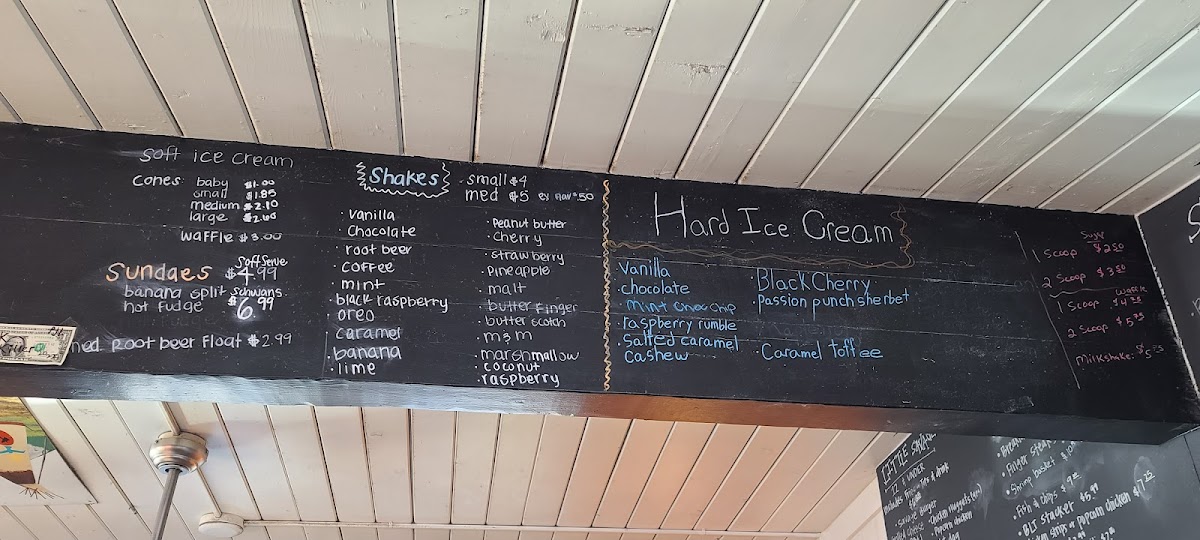 Soft ice cream
Cones baby $1.00
small $1.85
medium $2.10
large
waffle $3.00
Sundaes Soft Serve $4.99
banana split Schwans
hot fudge $6.99
med Root beer Float $2.99
Shakes
small $4
med $5 ex flav $.50
vanilla
chocolate
root beer
coffee
mint
black raspberry
oreo
caramel
banana
lime
Peanut butter
Cherry
strawberry
Pineapple
malt
butter finger
butter scotch
m&m
marshmallow
coconut
raspberry
Hard Ice Cream
vanilla
chocolate
mint choc chip
raspberry rumble
salted caramel
cashew
Black Cherry
passion punch sherbet
Caramel toffee
Sugar
1 Scoop $2.50
2 Scoop
Waffle
1 Scoop
2 Scoop
Milkshake:
LITTLE SAVAGE
12 & UNDER
includes fries & drink
Savage Burger
Chicken Nuggets
Popcorn chicken
Finger Steak
Shrimp basket
Fish & Chips
BLT Stacker $5.99
popcorn chicken $7.25